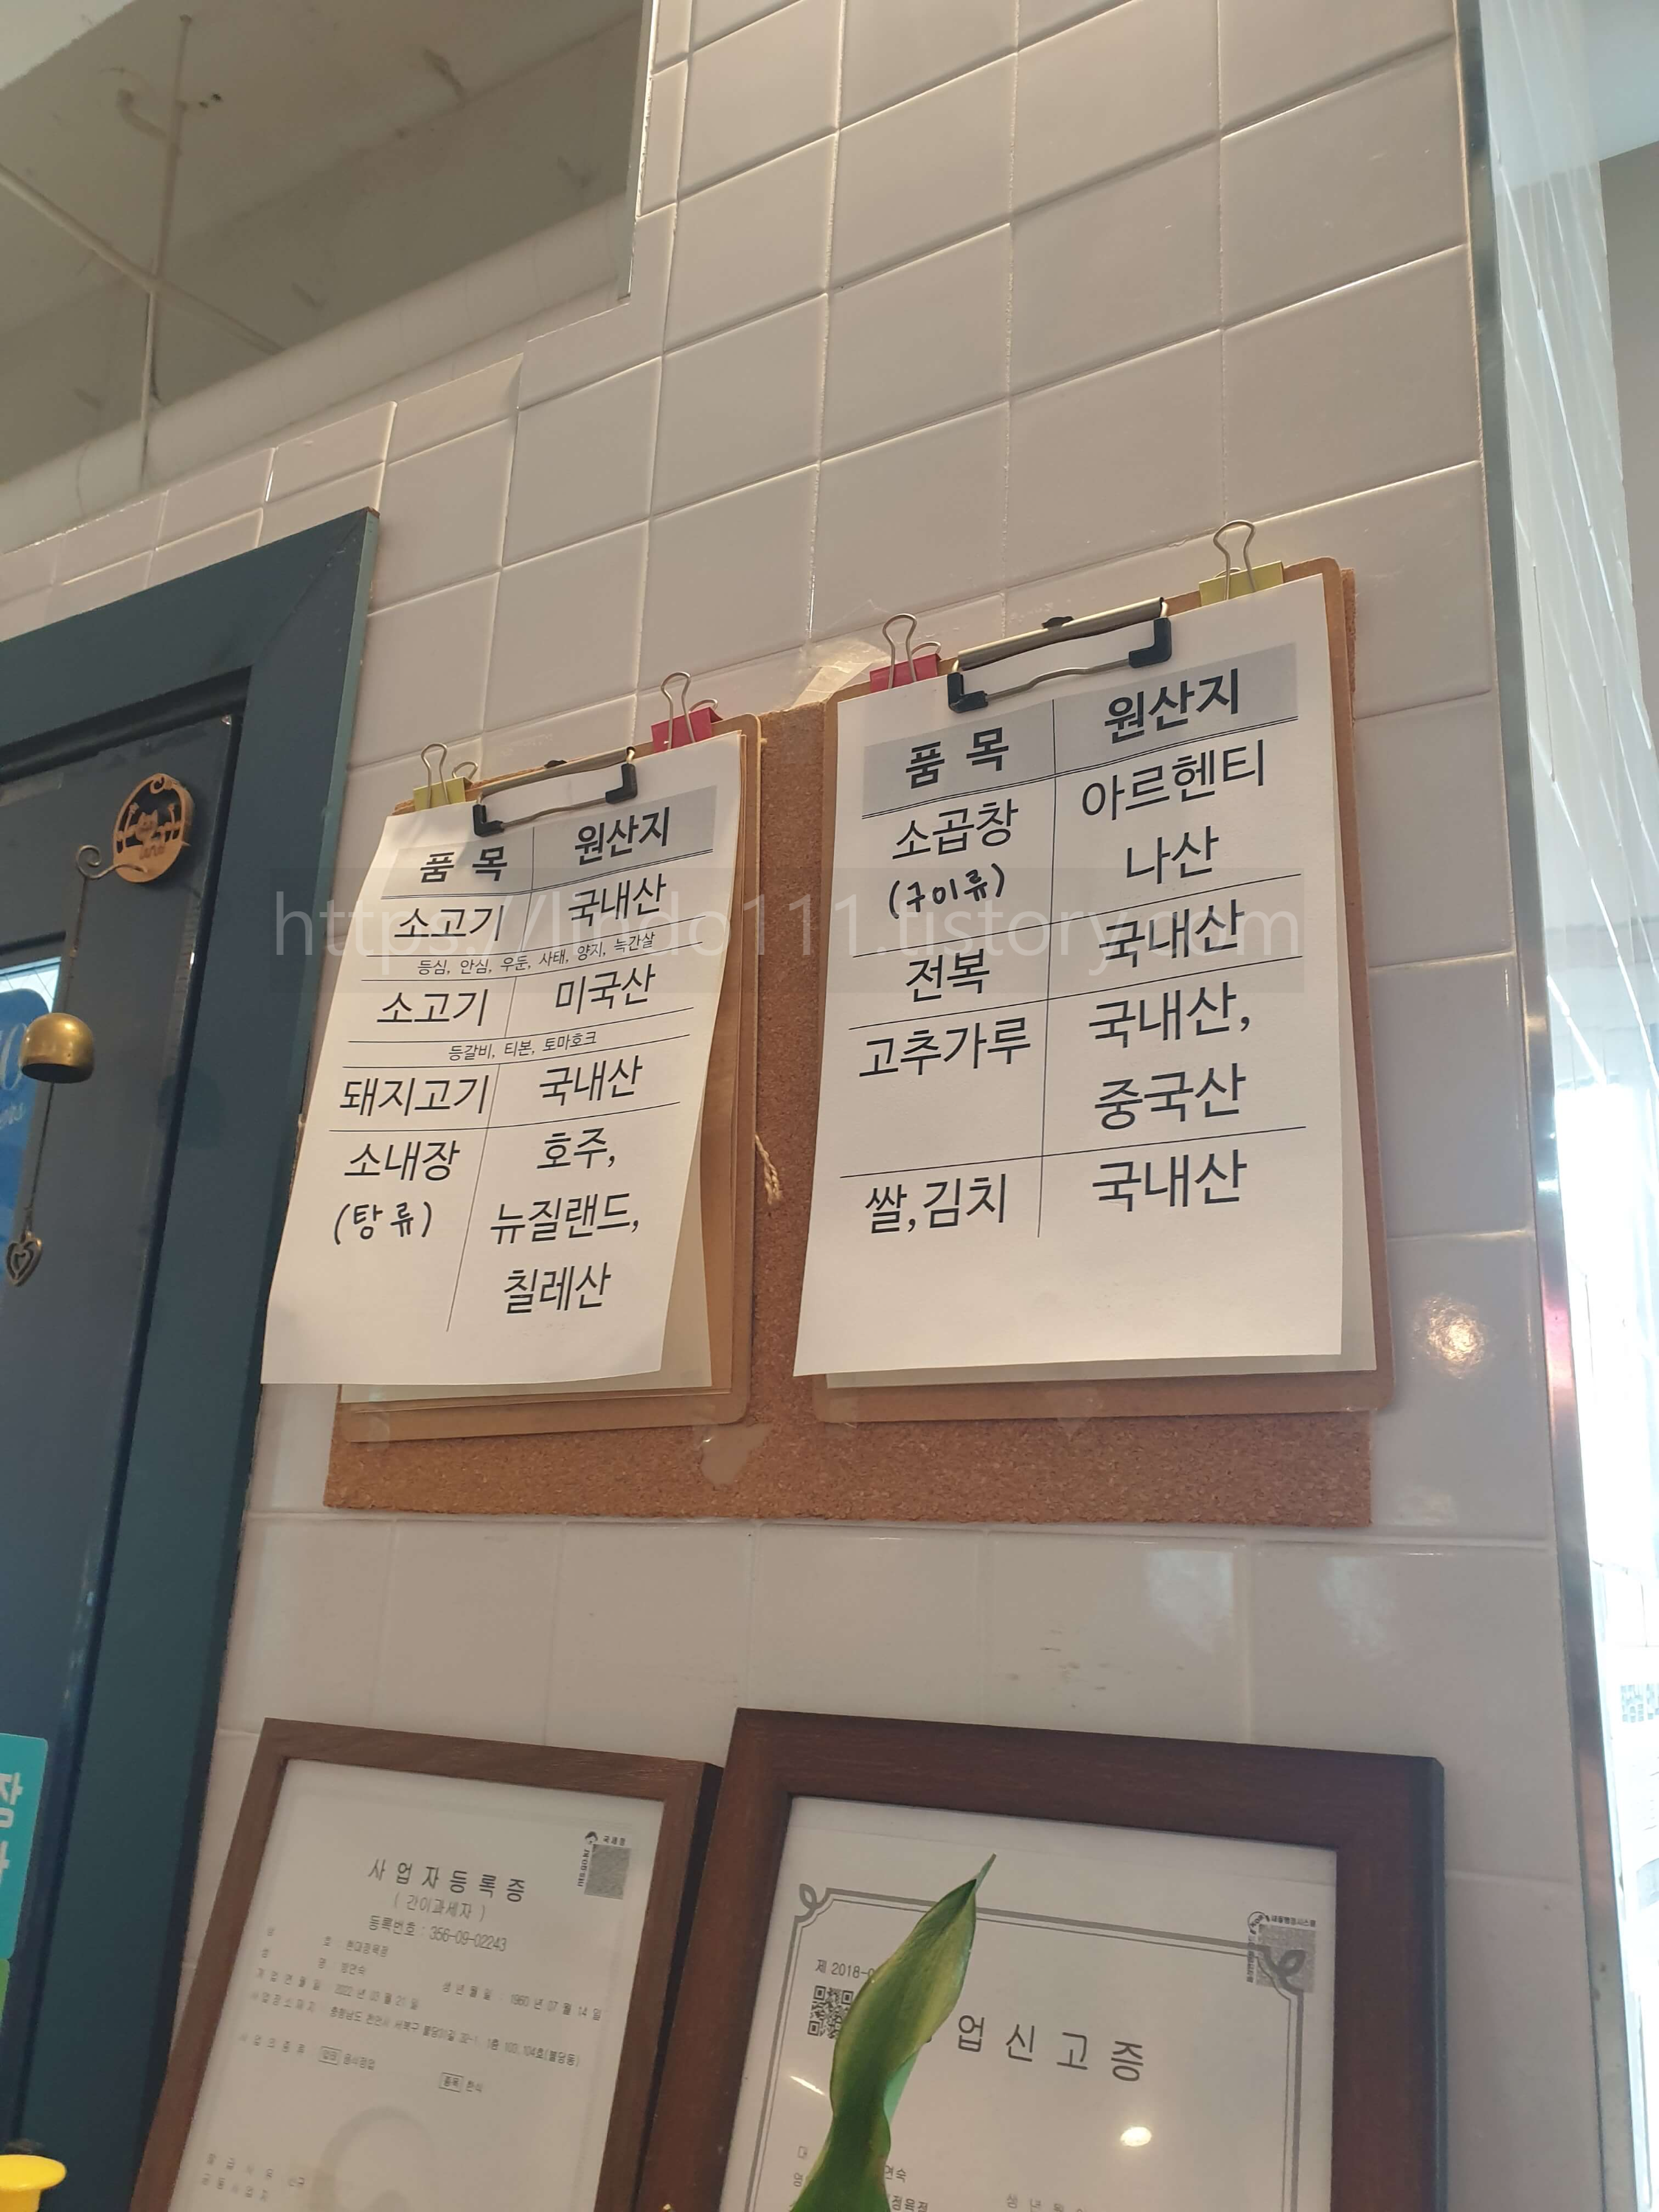 품 목 원산지
소고기 국내산
등심, 안심, 우둔, 사태, 양지, 늑간살
소고기 미국산
등갈비, 티본, 토마호크
돼지고기 국내산
소내장 호주,
(탕류) 뉴질랜드,
칠레산
품 목 원산지
소곱창 아르헨티
(구이류) 나산
전복 국내산
고추가루 국내산,
중국산
쌀,김치 국내산
https://lindo111.tistory.com
국세청
사업자등록증
( 간이과세자 )
등록번호 : 356-09-02243
생년월일 : 1960 년 07 월 14 일
개업연월일 : 2022 년 03 월 21 일
사업의종류 : 업태 음식점업
종목 한식
제 2018-0
업신고증
연숙